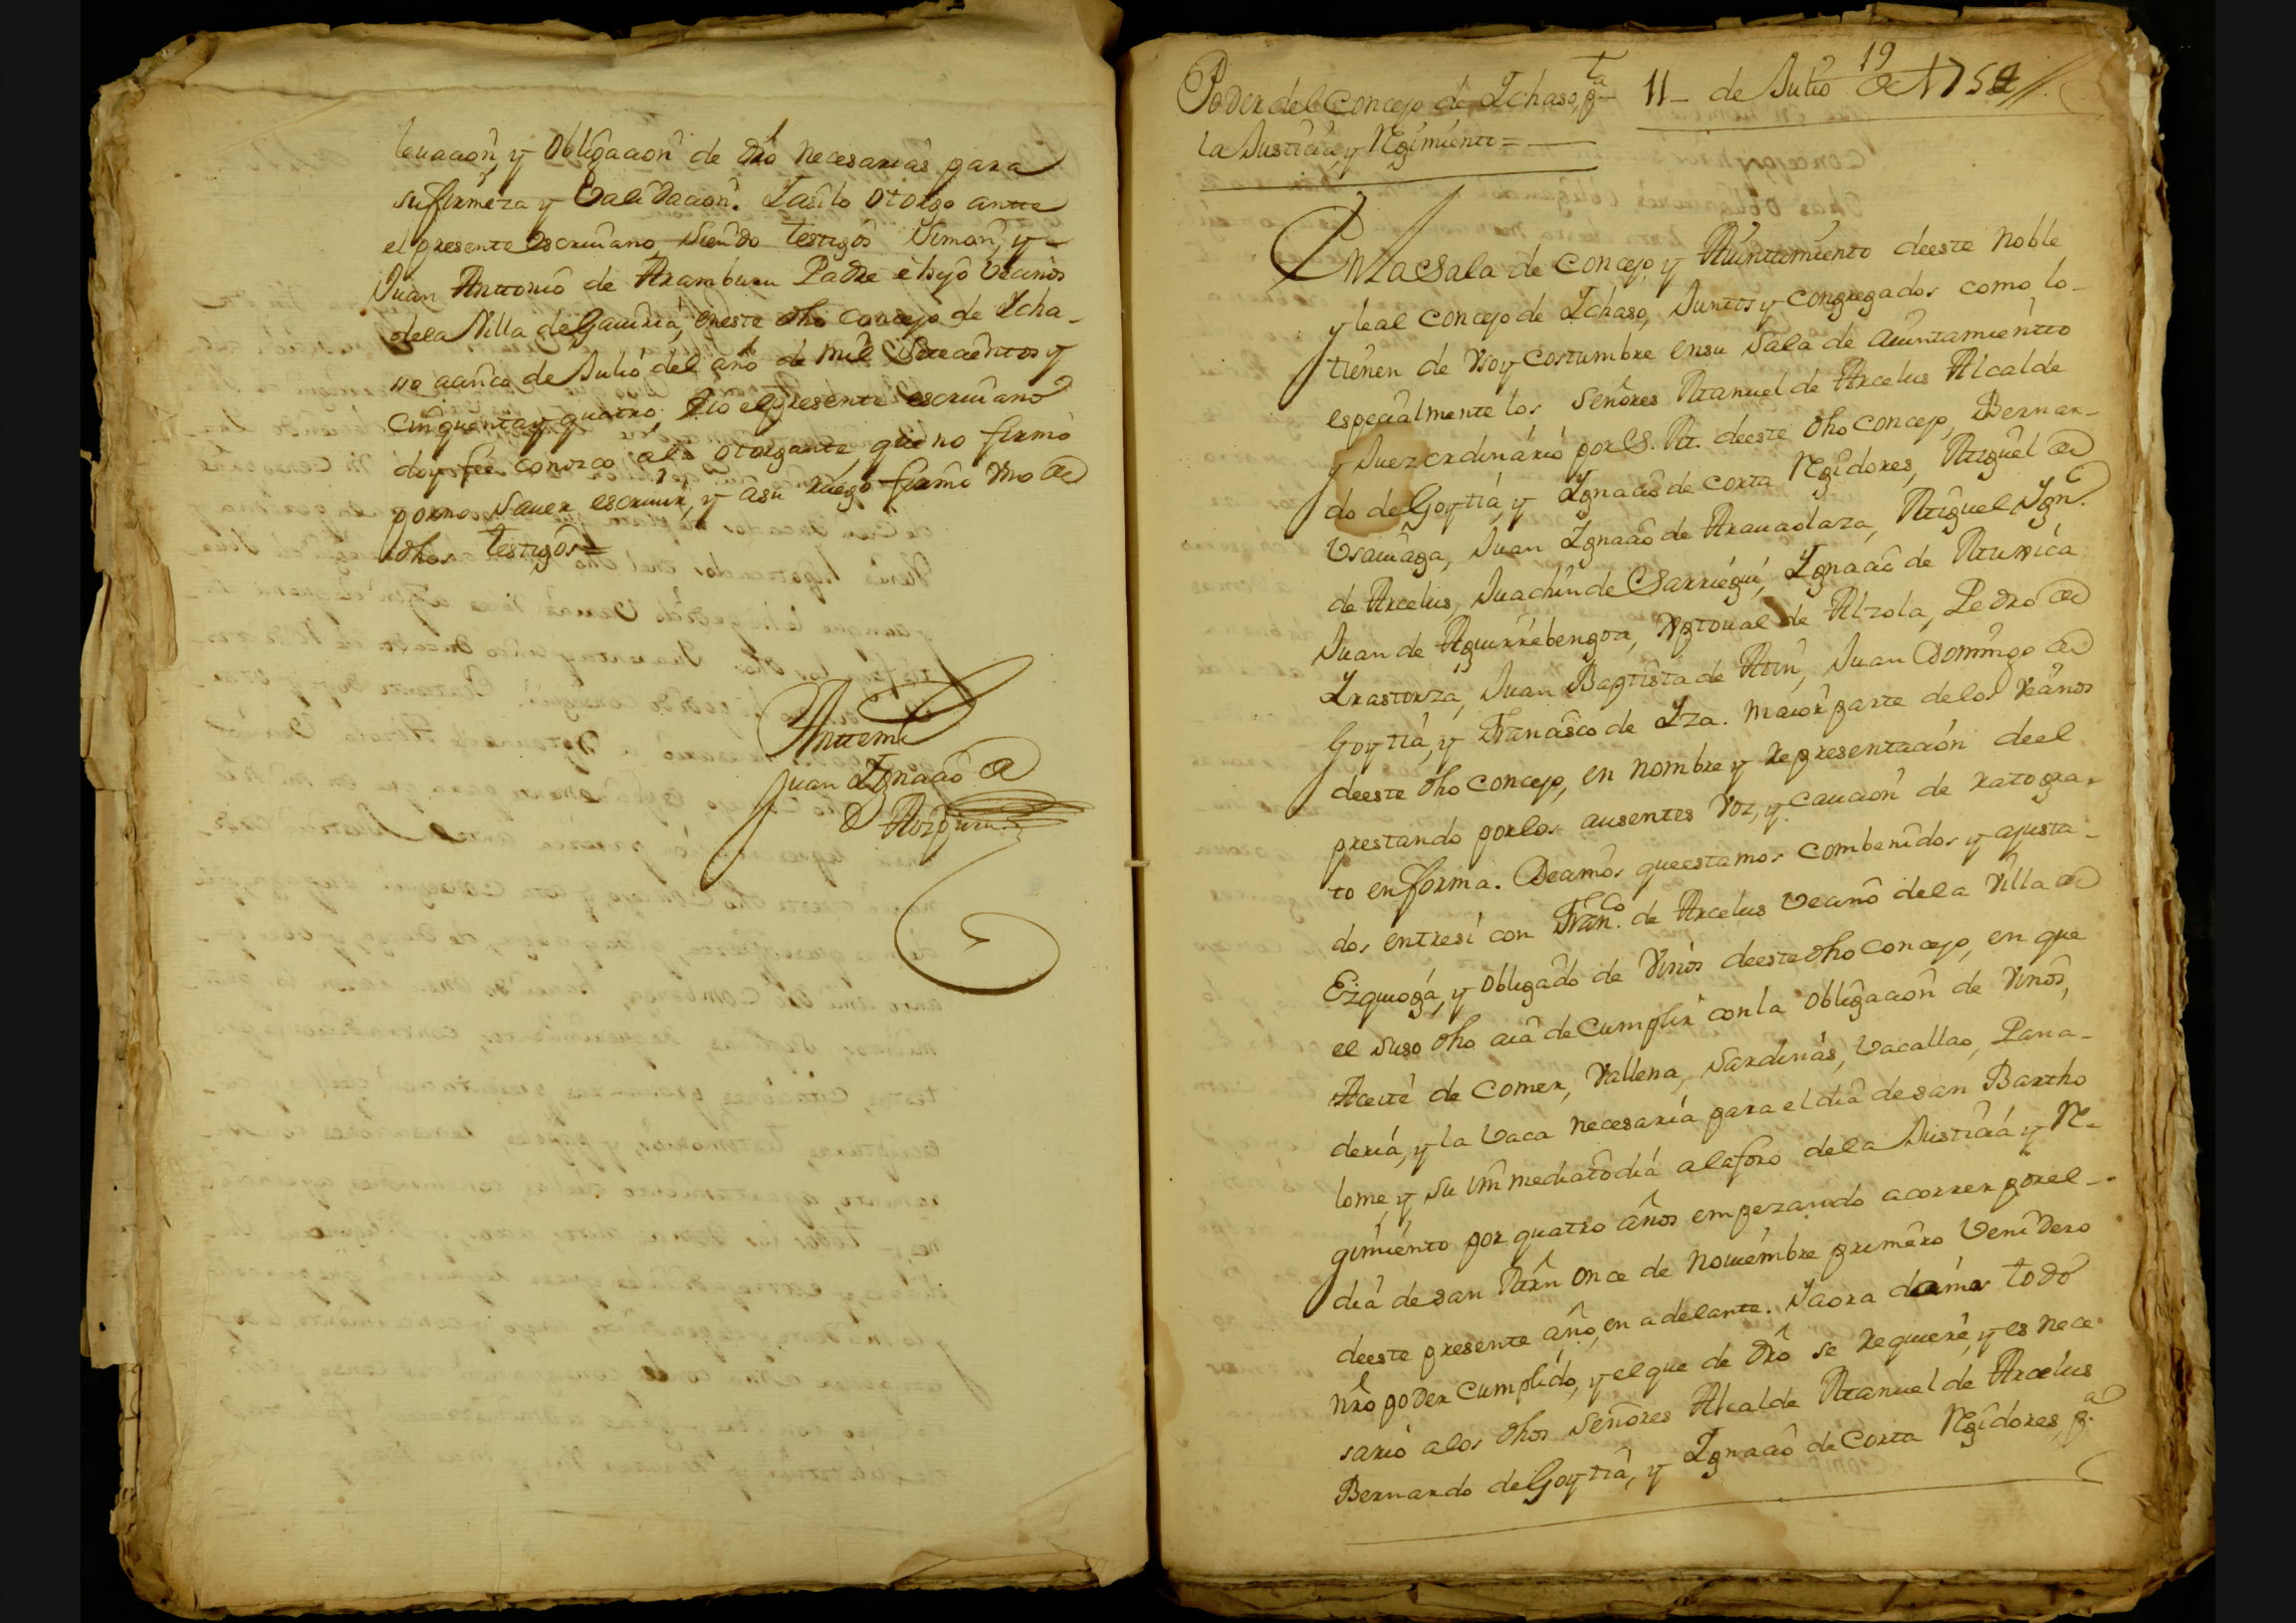 leuacion, y Obligacion de dro necesarias para
su firmeza y Validacion. Iasilo otorgo ante
el presente escriuano siendo testigos Simon, y
Juan Anttonio de Aramburu Padre è hijo Vecinos
dela Villa de Gauiria, en este dho concejo de Icha-
so a cinco de Julio del año de mil Setecientos y
cinquenta y quatro, Yio el presente escriuano
doy feè conozco àla otorgante, que no firmo
por no sauer escriuir, y àsu ruego firmò vno de
dhos testigos=
Anttemi
Juan Ignacio de
Aozpuru
19
Poder del Concejo de Ichaso, pta 11- de Julio de 1754
la Justicia, y Regimiento=
En la Sala de concejo, y Aiuntamiento deeste Noble
y leal concejo de Ichaso, Juntos y congregados como lo-
tienen de vso y costumbre ensu sala de aiuntamientto
especialmente los Señores Manuel de Arcelus Alcalde
y Juez ordinario por S. M. deeste dho concejo, Bernar-
do de Goytia, y Ignacio de Corta Regidores, Miguel de
Vsauiaga, Juan Ignacio de Arauaolaza, Miguel Ign.o
de Arcelus, Juachin de Sarriegui, Ignacio de Munica
Juan de Aguirrebengoa, de Alzola, Pedro de
Irastorza, Juan Baptista de Min, Juan Domingo de
Goytia, y Francisco de Iza. maior parte delos vecinos
deeste dho concejo, en nombre y representacion deel
prestando porlos ausentes voz, y caucion de rato gra-
to en forma. Decimos queestamos combenidos y ajusta-
dos entresi con Fran.co de Arcelus vecino dela Villa de
Ezquioga, y obligado de Vinos deeste dho concejo, en que
el suso dho aia de cumplir conla obligacion de Vinos,
Aceite de comer, Vallena, Sardinas, Vacallao, Pana-
deria, y la Vaca necesaria para el dia de san Bartho
lome, y su immediato dia alaforo dela Justicia y Re-
gimiento por quatro años empezando acorrer porel-
dia de san Mrn once de Nouiembre primero Venidero
deeste presente año, en adelante. Iaora damos todo
nro poder cumplido, y elque de dro se requiere, y es nece-
sario alos dhos Señores Alcalde Manuel de Arcelus
Bernardo de Goytia, y Ignacio de Corta Regidores, p.a